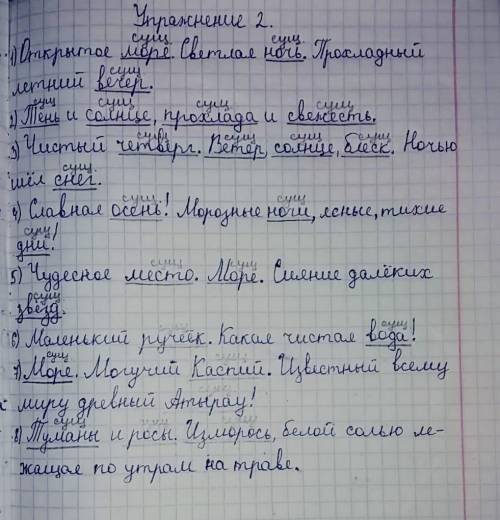 Упражнение 2.
сущ сущ
1) Открытое море. Светлая ночь. Прохладный
сущ
летний вечер.
сущ сущ сущ сущ
2) Тень и солнце, прохлада и свежесть.
сущ сущ сущ сущ
3) Чистый четверг. Ветер, солнце, блеск. Ночью
сущ
шёл снег.
сущ сущ
4) Славная осень! Морозные ночи, ясные, тихие
сущ
дни!
сущ сущ
5) Чудесное место. Море. Сияние далёких
сущ
звёзд.
сущ сущ
6) Маленький ручеёк. Какая чистая вода!
сущ сущ
7) Море. Могучий Каспий. Известный всему
сущ
миру древний Атырау!
сущ
8) Туманы и росы. Изморось, белой солью ле-
жащая по утрам на траве.